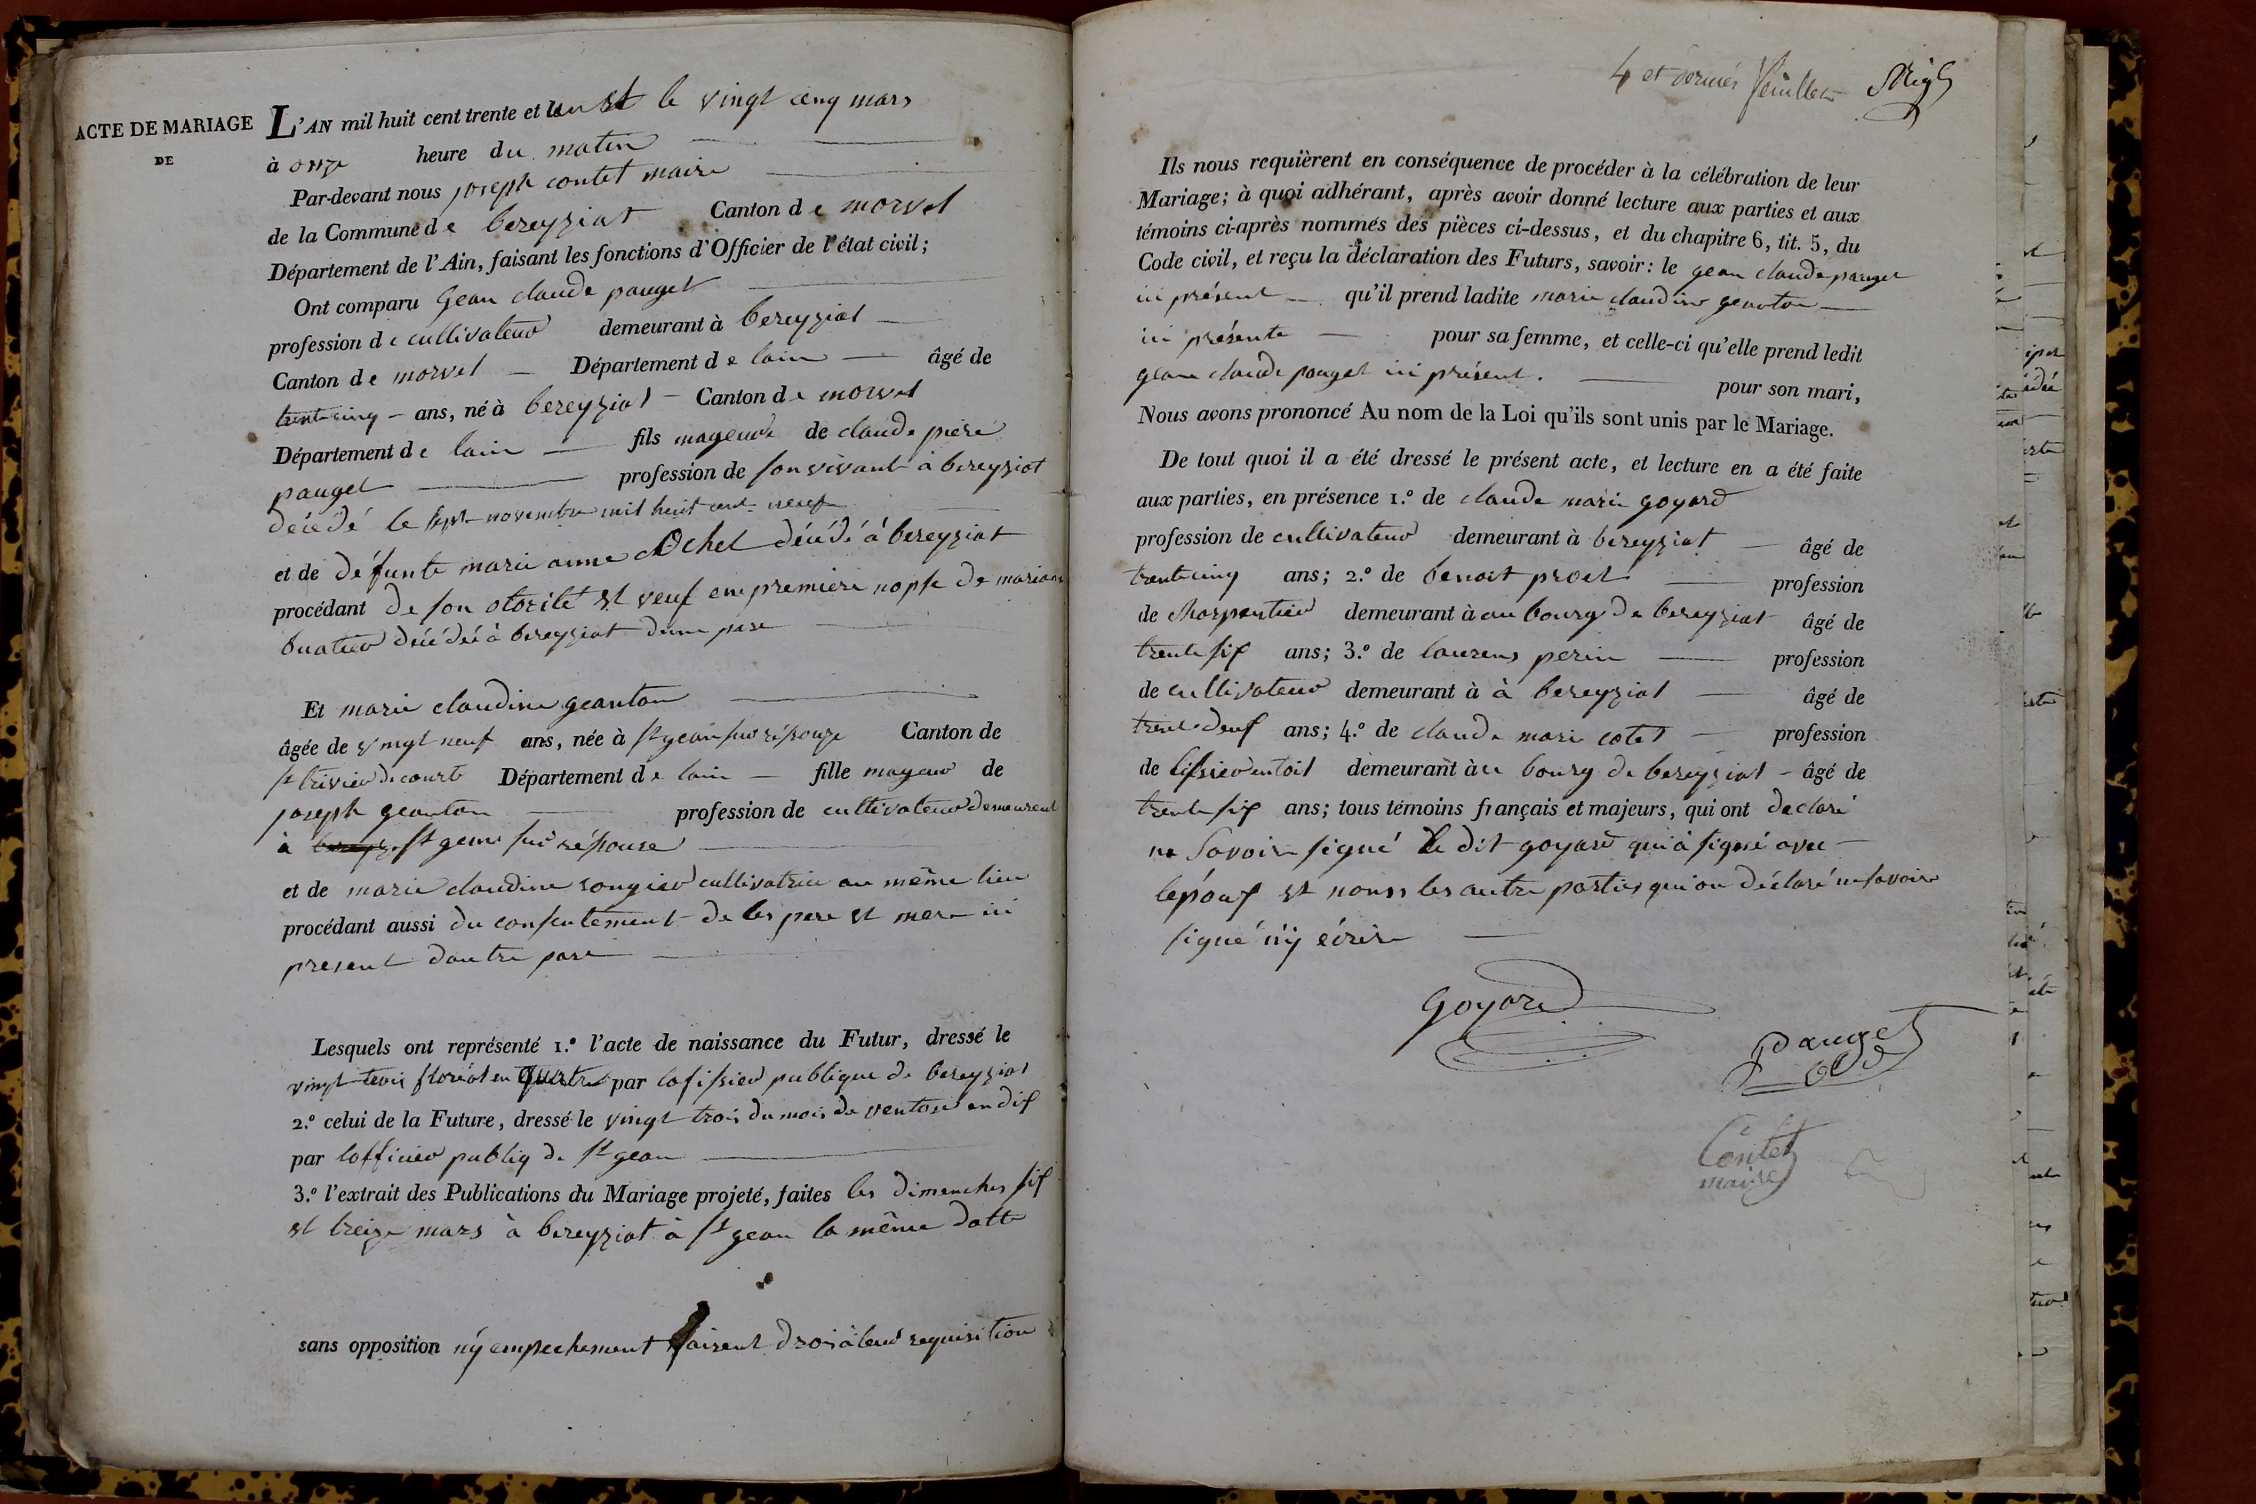 ACTE DE MARIAGE
DE
L'AN mil huit cent trente et le vingt cinq mars
à onze heure du matin
Par-devant nous joseph contet maire
de la Commune de bereyziat Canton de morvel
Département de l'Ain, faisant les fonctions d'Officier de l'état civil;
Ont comparu Gean claude pauget
profession de cullivateur demeurant à bereyziat
Canton de morvel Département de lain âgé de
trentecinq ans, né à bereyziat Canton de morvel
Département de lain fils mageure de claude piere
pauget profession de son vivant à bereyziat
décédé le sept novembre mil huit cent neuf
et de défunte marie anne décédé à bereyziat
procédant de son otorité et veuf en premiere nopse de mariane
buatier décédée à bereyziat dune part
Et marie claudine geanton
âgée de vingt neuf ans, née à st gean sur résouze Canton de
st trivier de courte Département de lain fille mageur de
joseph geanton profession de cultivateur demeurent
à st gean sur résouse
et de marie claudine rougier cultivatrice au même lieu
procédant aussi du consentement de les pere et mere ici
present dautre part
Lesquels ont représenté 1.º l'acte de naissance du Futur, dressé le
vingt trois floréal en quatre par lofissier publique de bereyziat
2.º celui de la Future, dressé le vingt trois du mois de ventose en dix
par lofficier publiq de st gean
3.º l'extrait des Publications du Mariage projeté, faites les dimenches six
et treize mars à bereyziat à st gean la même datte
sans opposition ny empechement faisent droi à leur requisition
4 et dernier feuillet
Ils nous requièrent en conséquence de procéder à la célébration de leur
Mariage; à quoi adhérant, après avoir donné lecture aux parties et aux
témoins ci-après nommés des pièces ci-dessus, et du chapitre 6, tit. 5, du
Code civil, et reçu la déclaration des Futurs, savoir: le gean claude pauget
ici présent qu'il prend ladite marie claudine geanton
ici présente pour sa femme, et celle-ci qu'elle prend ledit
gean claude pauget ici présent. pour son mari,
Nous avons prononcé Au nom de la Loi qu'ils sont unis par le Mariage.
De tout quoi il a été dressé le présent acte, et lecture en a été faite
aux parties, en présence 1.º de claude marie goyard
profession de cullivateur demeurant à bereyziat âgé de
trentecinq ans; 2.º de benoit prost profession
de charpentier demeurant à au bourg de bereyziat âgé de
trente six ans; 3.º de laurens perin profession
de cullivateur demeurant à à bereyziat âgé de
trent deux ans; 4.º de claude marie cotet profession
de tissier en toil demeurant à u bourg de bereyziat âgé de
trente six ans; tous témoins français et majeurs, qui ont déclaré
ne savoir signé le dit goyard qui à signé avec
lépoux et nous les autre parties qui on déclaré ne savoir
signé n'y écrire
Goyard
Pauget
Contet
maire